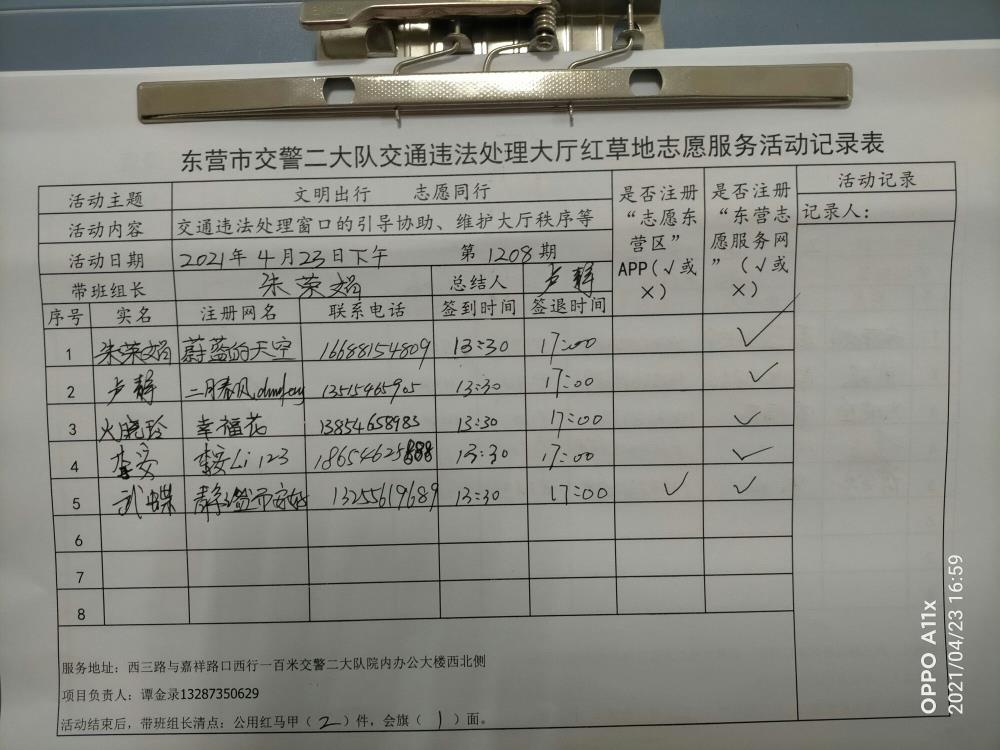 东营市交警二大队交通违法处理大厅红草地志愿服务活动记录表
活动主题 文明出行 志愿同行 是否注册“志愿东营区”APP(√或×) 是否注册“东营志愿服务网”(√或×) 活动记录
活动内容 交通违法处理窗口的引导协助、维护大厅秩序等 记录人:
活动日期 2021年4月23日下午 第1208期
带班组长 朱荣娟 总结人 卢静
序号 实名 注册网名 联系电话 签到时间 签退时间
1 朱荣娟 蔚蓝的天空 16688154809 13:30 17:00 √
2 卢静 二月春风 13515465905 13:30 17:00 √
3 火晓玲 幸福花 13854658983 13:30 17:00 √
4 李安 李安Li123 18654625888 13:30 17:00 √
5 武蝶 13255619689 13:30 17:00 √ √
6
7
8
服务地址：西三路与嘉祥路口西行一百米交警二大队院内办公大楼西北侧
项目负责人：谭金录13287350629
活动结束后，带班组长清点：公用红马甲（2）件，会旗（1）面。
OPPO A11x
2021/04/23 16:59